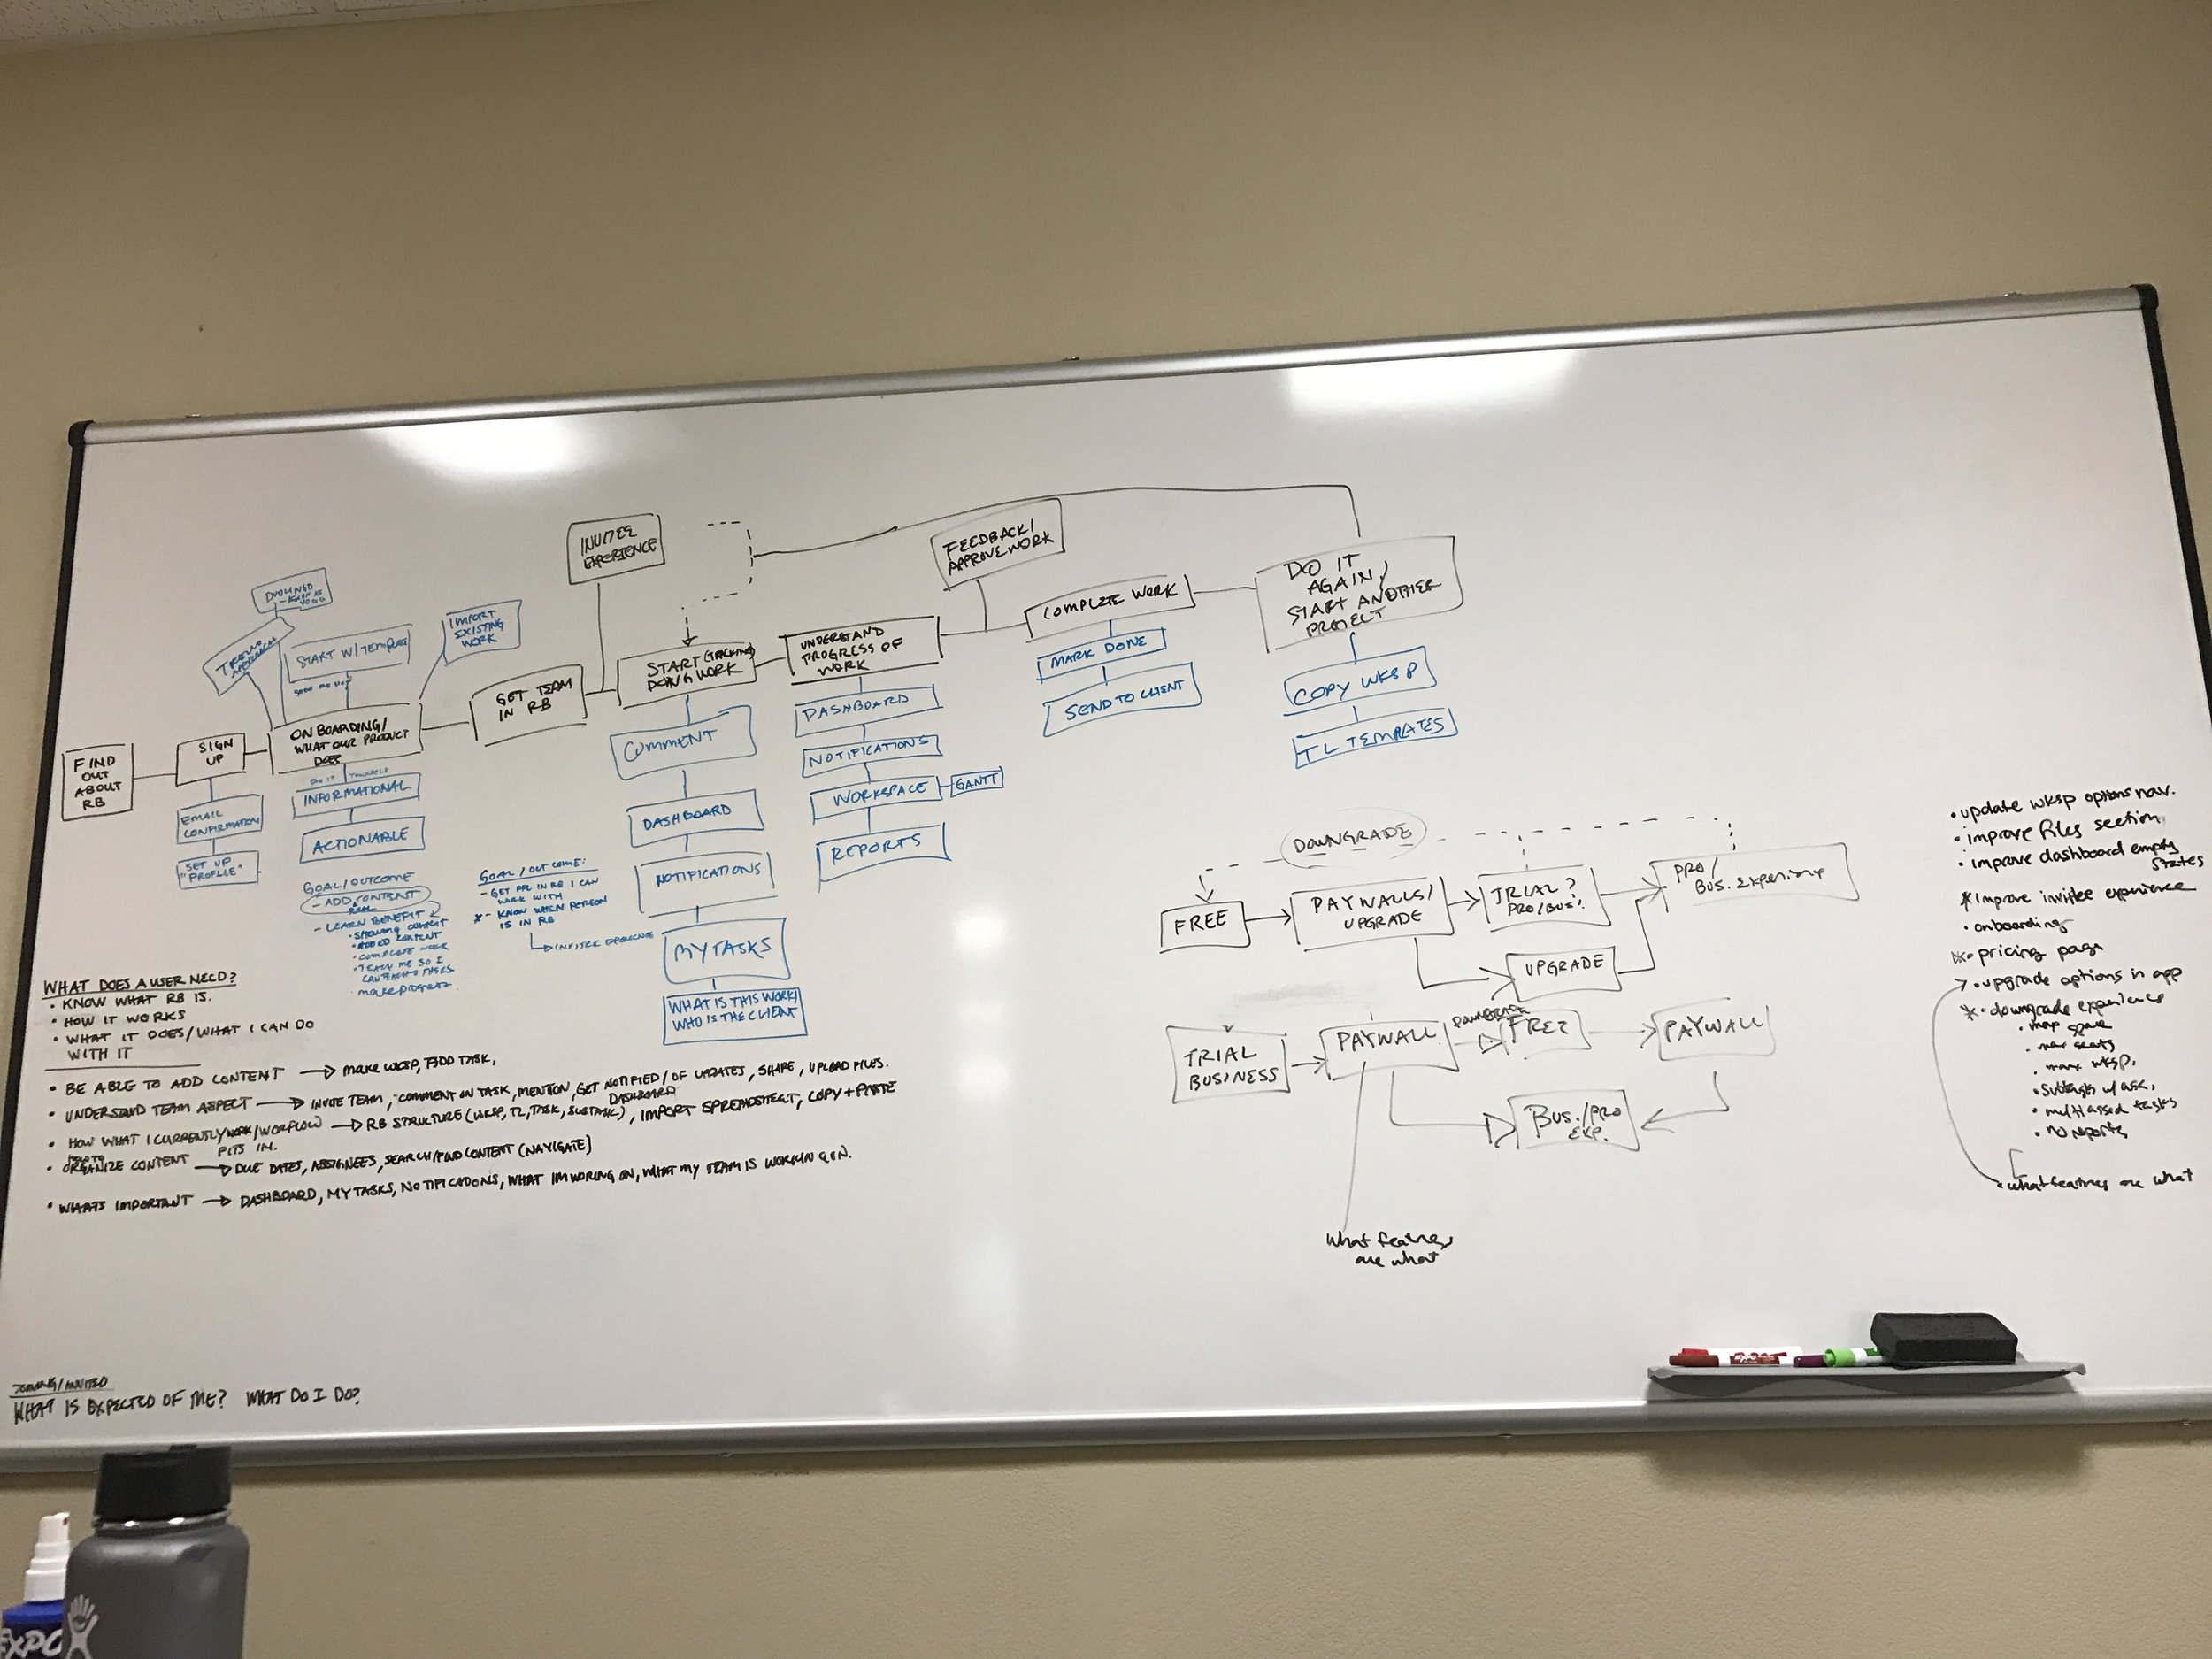 INVITEE
EXPERIENCE
FEEDBACK/
APPROVE WORK
DO IT
AGAIN/
START ANOTHER
PROJECT
COPY WKSP
TL TEMPLATES
COMPLETE WORK
MARK DONE
SEND TO CLIENT
UNDERSTAND
PROGRESS OF
WORK
DASHBOARD
NOTIFICATIONS
WORKSPACE
GANTT
REPORTS
START (TRACKING)
DOING WORK
COMMENT
DASHBOARD
NOTIFICATIONS
MY TASKS
WHAT IS THIS WORK/
WHO IS THE CLIENT
GET TEAM
IN RB
GOAL/OUTCOME:
- GET PPL IN RB I CAN
WORK WITH
* - KNOW WHEN PERSON
IS IN RB
INVITEE EXPERIENCE
IMPORT
EXISTING
WORK
START W/TEMPLATE
DUOLINGO
ONBOARDING/
WHAT OUR PRODUCT
DOES
DO IT YOURSELF
INFORMATIONAL
ACTIONABLE
GOAL/OUTCOME
- ADD CONTENT
REAL
- LEARN BENEFIT
• ADDED CONTENT
• COMPLETE WORK
• TEACH ME SO I
• make progress
SIGN
UP
EMAIL
CONFIRMATION
SET UP
"PROFILE"
FIND
OUT
ABOUT
RB
WHAT DOES A USER NEED?
• KNOW WHAT RB IS.
• HOW IT WORKS
• WHAT IT DOES/WHAT I CAN DO
WITH IT
• BE ABLE TO ADD CONTENT → MAKE WKSP, ADD TASK,
• UNDERSTAND TEAM ASPECT → INVITE TEAM, COMMENT ON TASK, MENTION, GET NOTIFIED/OF UPDATES, SHARE, UPLOAD FILES.
DASHBOARD
• HOW WHAT I CURRENTLY WORK/WORFLOW → RB STRUCTURE (WKSP, TL, TASK, SUBTASK), IMPORT SPREADSHEET, COPY + PASTE
FITS IN.
HOW TO
• ORGANIZE CONTENT → DUE DATES, ASSIGNEES, SEARCH/FIND CONTENT (NAVIGATE)
• WHATS IMPORTANT → DASHBOARD, MY TASKS, NOTIFICATIONS, WHAT IM WORING ON, WHAT MY TEAM IS WORKIN G ON.
JOINING/INVITED
WHAT IS EXPECTED OF ME? WHAT DO I DO?
DOWNGRADE
FREE
PAYWALLS/
UPGRADE
TRIAL?
PRO/BUS.
PRO/
BUS. Experience
UPGRADE
TRIAL
BUSINESS
PAYWALL
DOWNGRADE
FREE
PAYWALL
BUS./PRO
EXP.
What features
are what
• update wksp options nav.
• improve files section
• improve dashboard empty
states
* Improve invitee experience
• onboarding
* • pricing page
> • upgrade options in app
* • downgrade experience
• max space
• max seats
• max wksp.
• multi assed tasks
• no reports
• what features are what
EXPO